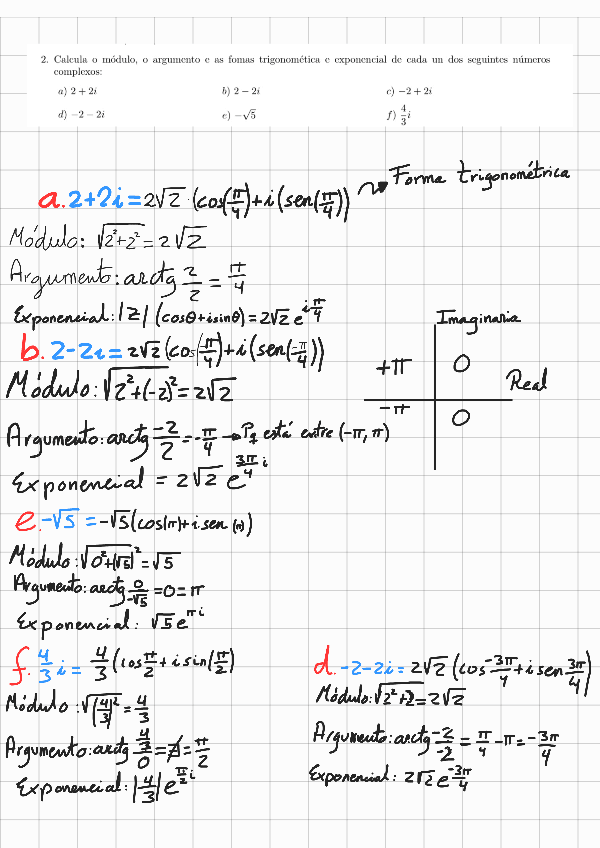 2. Calcula o módulo, o argumento e as fomas trigonométrica e exponencial de cada un dos seguintes números
complexos:
a) 2 + 2i b) 2 − 2i c) −2 + 2i
d) −2 − 2i e) −√5 f) 4/3 i
a. 2+2i = 2√2 (cos(π/4)+i(sen(π/4)) Forma trigonométrica
Módulo: √2²+2² = 2√2
Argumento: arctg 2/2 = π/4
Exponencial: |z| (cosθ+isinθ) = 2√2 e^iπ/4
b. 2-2i = 2√2 (cos(-π/4)+i(sen(-π/4))
Módulo: √2²+(-2)² = 2√2
Argumento: arctg -2/2 = -π/4 → Pq está entre (-π, π)
Exponencial = 2√2 e^3π/4 i
Imaginaria
+π 0
Real
-π 0
e. -√5 = -√5(cos(π)+i.sen(π))
Módulo: √0²+(√5)² = √5
Argumento: arctg 0/-√5 = 0 = π
Exponencial: √5 e^πi
f. 4/3 i = 4/3 (cos π/2 + i sin(π/2)
Módulo: √(4/3)² = 4/3
Argumento: arctg 4/3/0 = ∄ = π/2
Exponencial: |4/3| e^π/2 i
d. -2-2i = 2√2 (cos -3π/4 + i sen 3π/4)
Módulo: √2²+2² = 2√2
Argumento: arctg -2/-2 = π/4 - π = -3π/4
Exponencial: 2√2 e^-3π/4